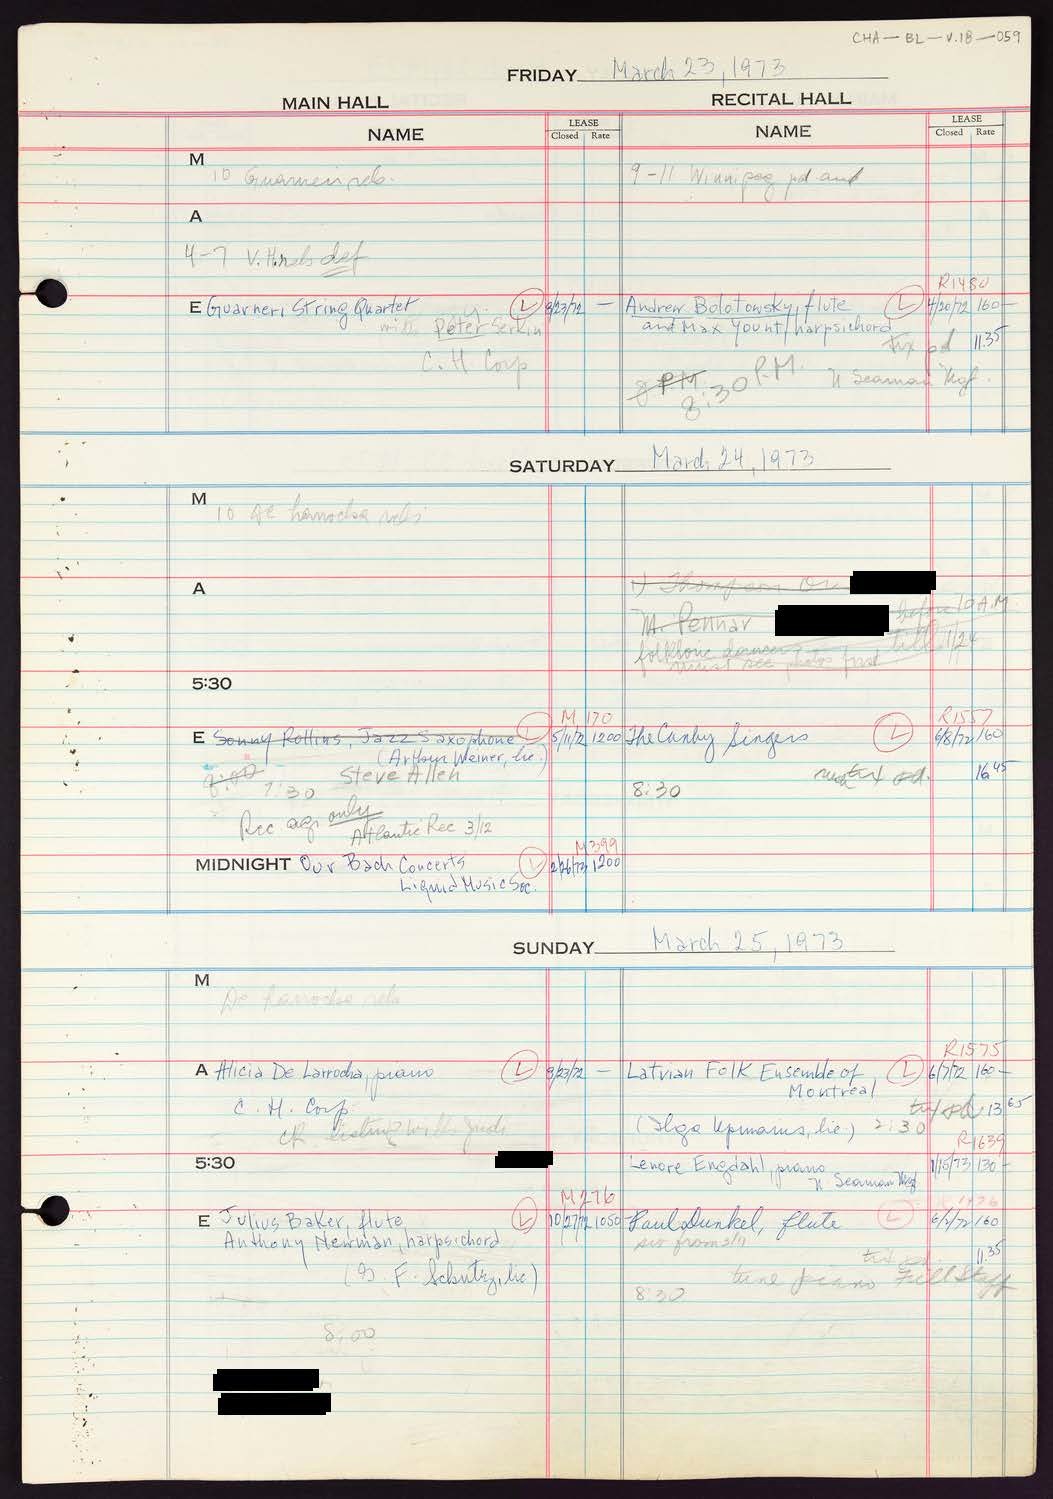 CHA-BL-V.18-059
FRIDAY March 23, 1973
MAIN HALL
RECITAL HALL
NAME
LEASE
Closed Rate
NAME
LEASE
Closed Rate
M
10 Guarneri reh.
9-11 Winnipeg pd aud
A
4-7 V.H. reh def
R1480
E Guarneri String Quartet L 9/23/72 —
with Peter Serkin
C.H Corp
Andrew Bolotowsky, flute L 4/20/72 160—
and Max Yount, harpsichord
tix pd 11.35
8 PM.
8:30 P.M.
N Seaman Mgt.
SATURDAY March 24, 1973
M
10 de larrocha reh
A
Thompson
M. Pennar before 10 A.M.
folkloric dancers till 1/24
must see photos first
5:30
M 170
E Sonny Rollins, Jazz Saxophone L 5/11/72 1200
(Arthur Weiner, lic.)
8:00 Steve Allen
7:30
Rec agr only
Atlantic Rec 3/12
R1557
The Canby Singers L 6/8/72 160
tix pd. 16.45
8:30
M399
MIDNIGHT Our Bach Concerts L 2/26/73 1200
Liquid Music Soc.
SUNDAY March 25, 1973
M
De larrocha reh
A Alicia De Larrocha, piano L 9/23/72 —
C. H. Corp
R1575
Latvian Folk Ensemble of L 6/7/72 160—
Montreal
tix pd 13.65
(Ilga Upmanis, lic.) 2:30
5:30
R1639
Lenore Engdahl, piano 1/15/73 130—
N. Seaman Mgt
M276
E Julius Baker, flute L 10/27/72 1050
Anthony Newman, harpsichord
(G. F. Schutz, lic)
8:00
Paul Dunkel, flute L 160
tix pd. 11.35
tune piano Full Staff
8:30